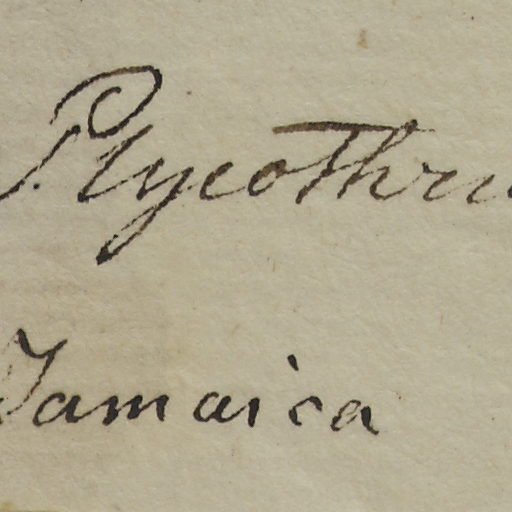 Plycothru
Jamaica